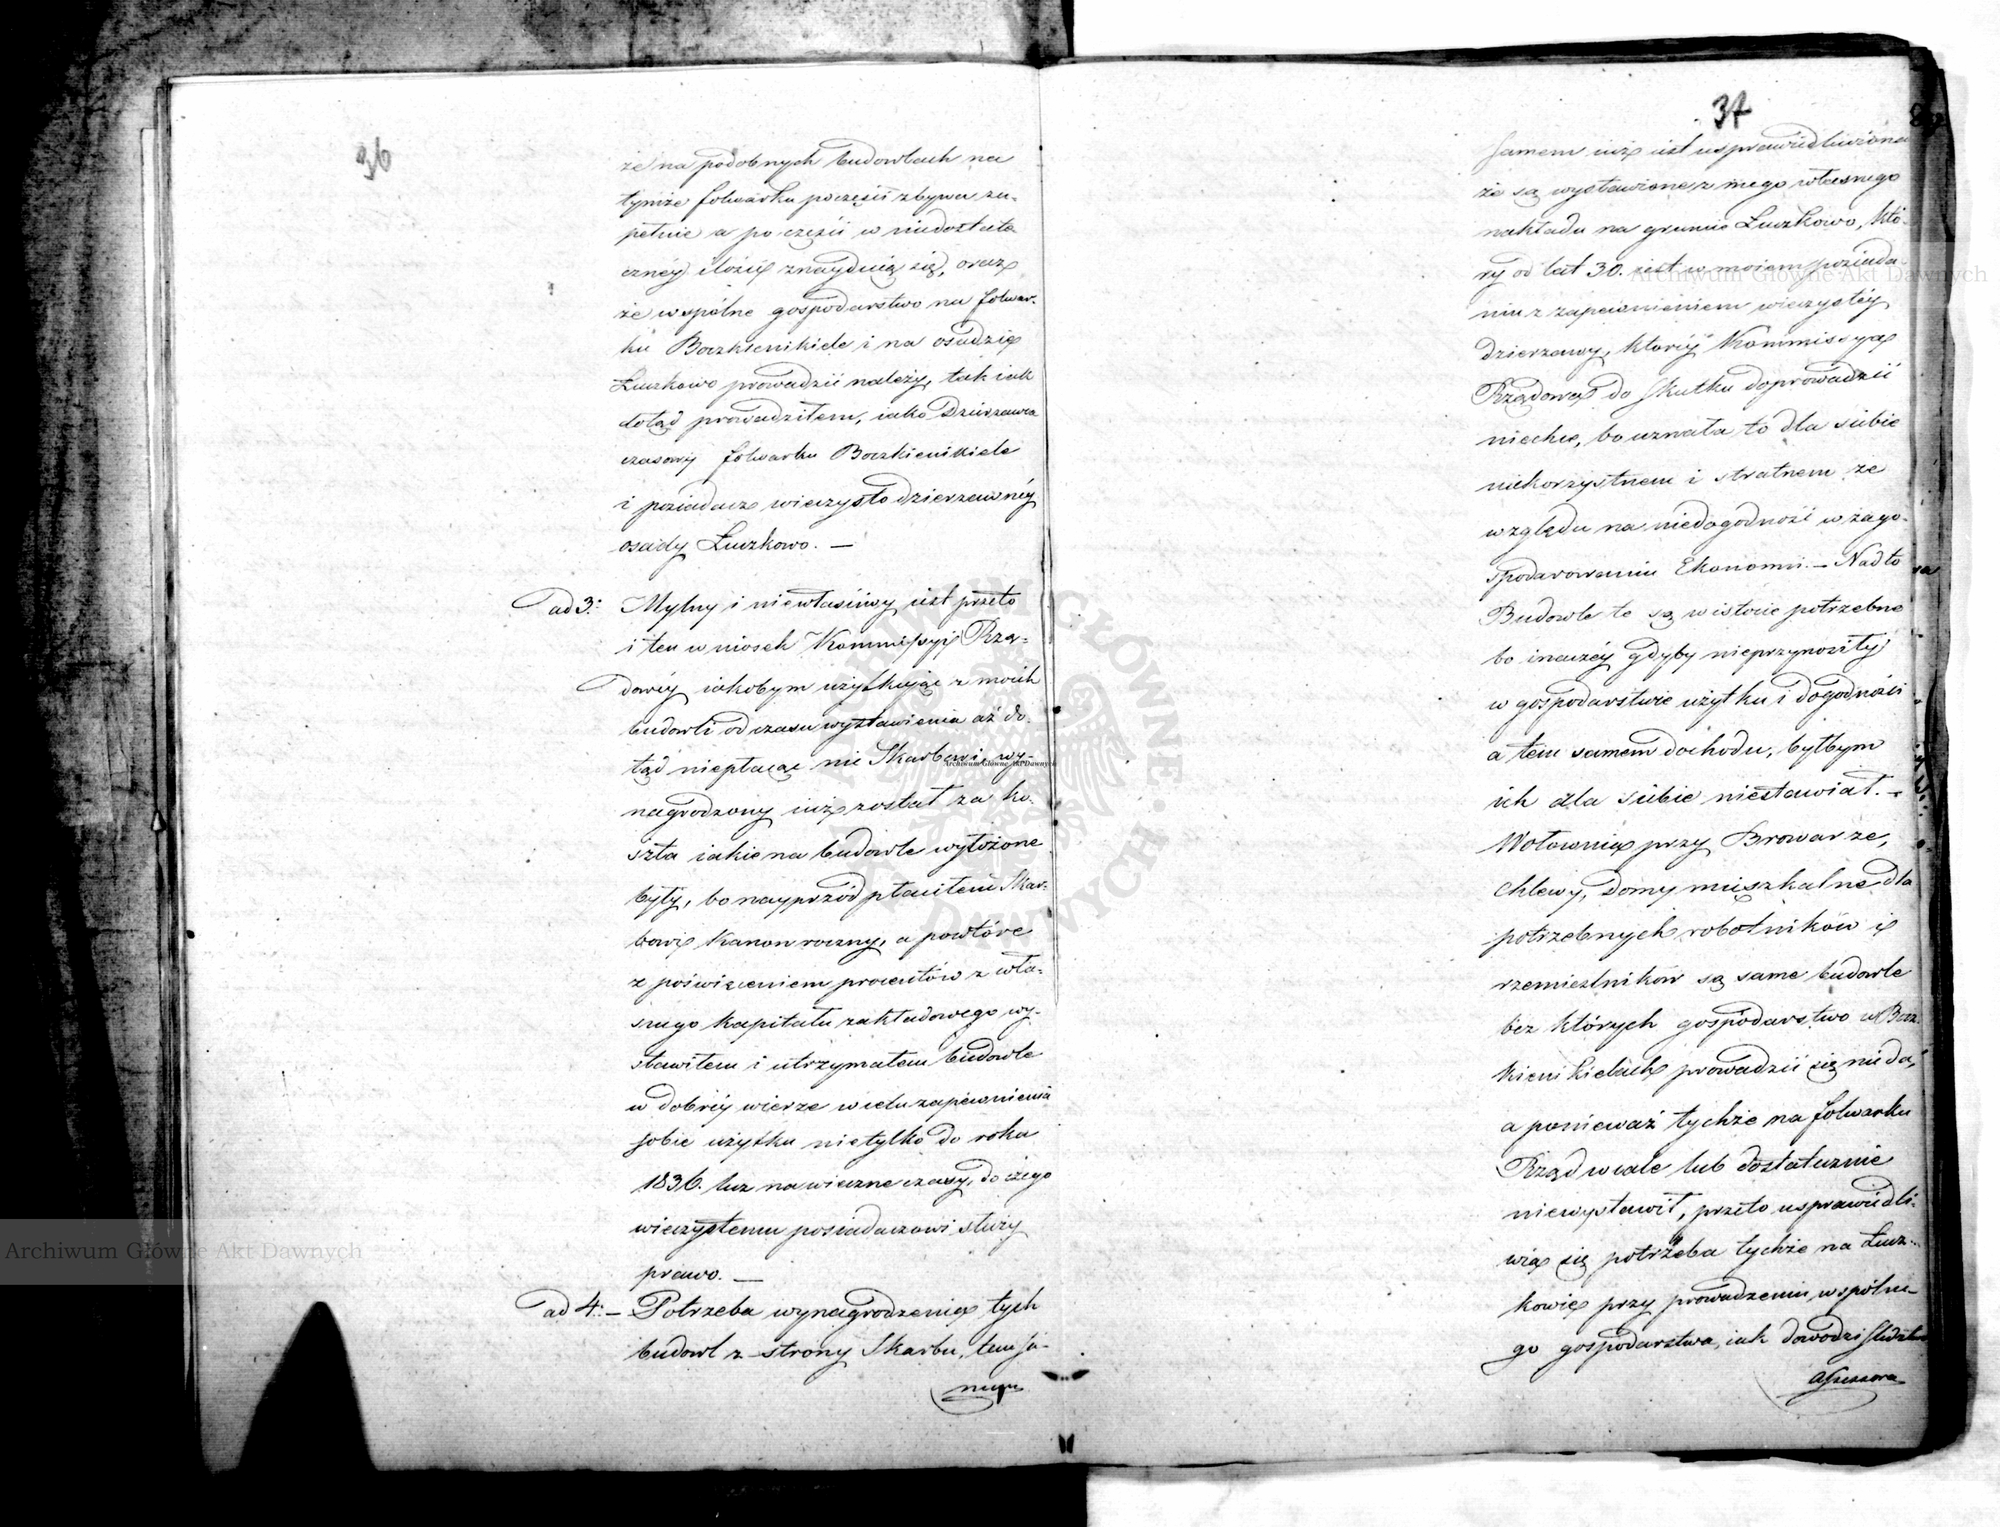 36
że na podobnych budowlach na
tymże folwarku poczęści zbywa zu-
pełnie a po części w niedostate-
cznéy ilości znayduią się, oraz
że wspólne gospodarstwo na folwar-
ku Boczkienikiele i na osadzie
Łuczkowo prowadzić należy, tak iak
dotąd prowadziłem, iako Dzierżawca
czasowy folwarku Boczkienikiele
i posiadacz wieczysto dzierżawnéy
osady Łuczkowo. —
ad 3: Mylny i niewłaściwy iest przeto
i ten wniosek Kommissyi Rzą-
dowéy iakobym użytkuiąc z moich
budowli od czasu wystawienia aż do-
tąd niepłacąc nic Skarbowi, wy-
nagrodzony iuż został za ko-
szta iakie na budowle wyłożone
były, bo nayprzód płaciłem Skar-
bowi Kanon roczny, a powtóre
z poświęceniem procentów z wła-
snego kapitału zakładowego wy-
stawiłem i utrzymałem budowle
w dobréy wierze w celu zapewnienia
sobie użytku nietylko do roku
1836. lecz na wieczne czasy, do czego
wieczystemu posiadaczowi służy
prawo. —
ad 4: — Potrzeba wynagrodzenia tych
budowl z strony Skarbu, tem sa-
mem
37
samem iuż iest usprawiedliwiona
że są wystawione z mego własnego
nakładu na gruncie Łuczkowo, któ-
ry od lat 30. iest w moiem posiada-
niu z zapewnieniem wieczystéy
dzierżawy, któréy Kommissya
Rządowa do skutku doprowadzić
niechce, bo uznała to dla siebie
niekorzystnem i stratnem ze
względu na niedogodność w zago-
spodarowaniu Ekonomii. — Nadto
Budowle te są w istocie potrzebne
bo inaczéy gdyby nieprzynosiły
w gospodarstwie użytku i dogodności
a tem samem dochodu, byłbym
ich dla siebie niestawiał. —
Wołownia przy Browarze,
Chlewy, Domy mieszkalne dla
potrzebnych robotników i
rzemieślników są same budowle
bez których gospodarstwo w Bocz-
kienikielach prowadzić się nie da,
a ponieważ tychże na folwarku
Rząd wcale lub dostatecznie
niewystawił, przeto usprawiedli-
wia się potrzeba tychże na Łucz-
kowie przy prowadzeniu wspólne-
go gospodarstwa, iak dowodzi
Assessora
Archiwum Główne Akt Dawnych
Archiwum Główne Akt Dawnych
Archiwum Główne Akt Dawnych